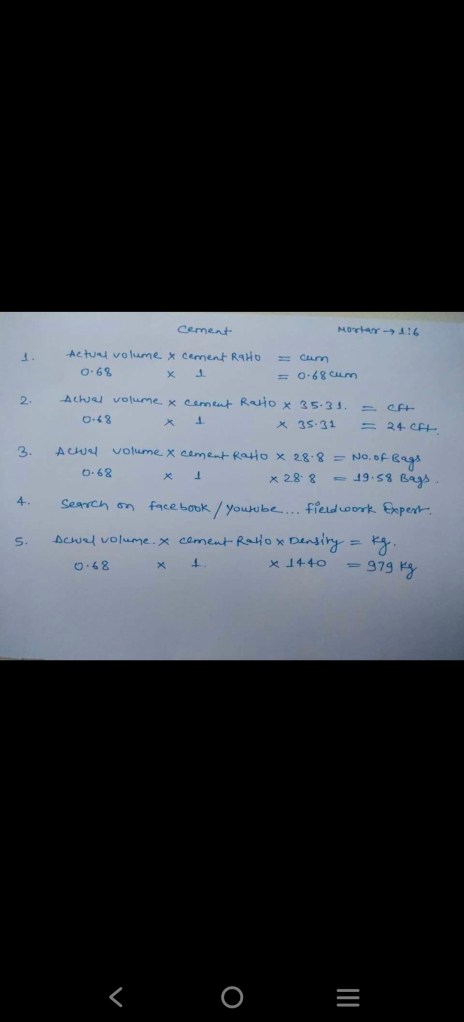 Cement Mortar → 1:6
1. Actual volume x cement Ratio = cum
0.68 x 1 = 0.68 cum
2. Actual volume x cement Ratio x 35.31. = cft
0.68 x 1 x 35.31 = 24 cft.
3. Actual volume x cement Ratio x 28.8 = No.of Bags
0.68 x 1 x 28.8 = 19.58 Bags.
4. Search on facebook/youtube... fieldwork Expert.
5. Actual volume. x cement Ratio x Density = kg.
0.68 x 1. x 1440 = 979 kg